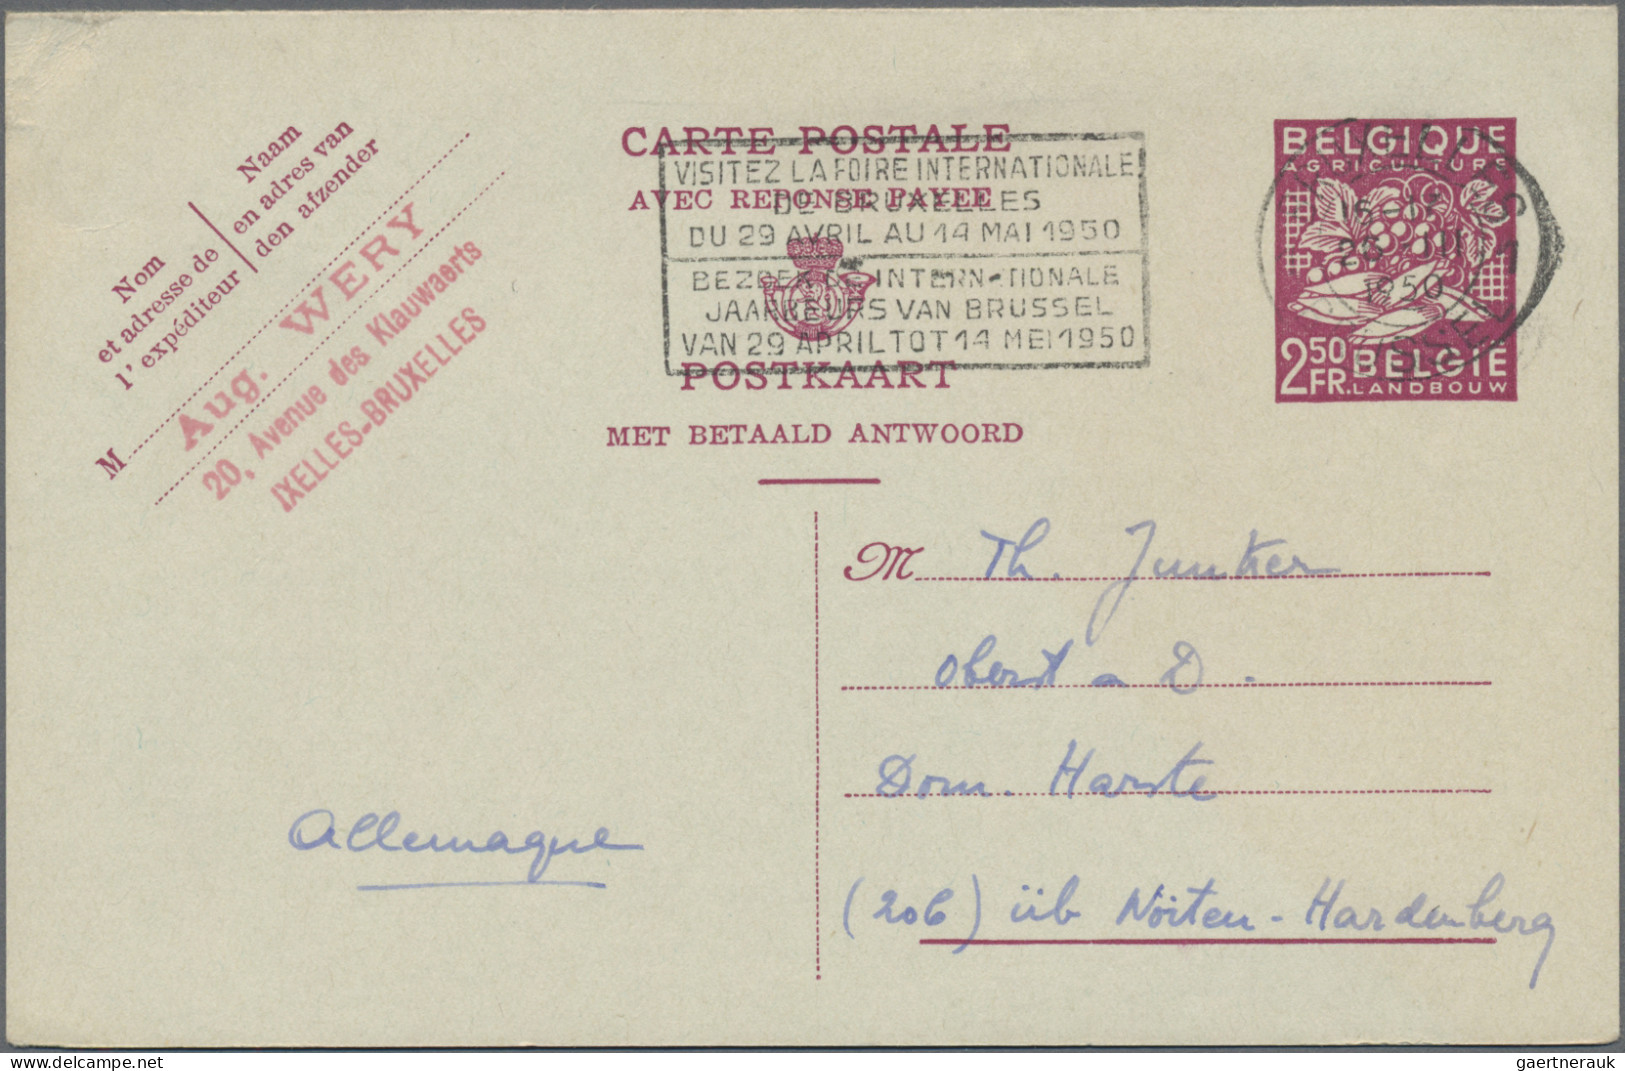 Nom
et adresse de
l'expéditeur
Naam
en adres van
den afzender
M
Aug. WERY
20, Avenue des Klauwaerts
IXELLES-BRUXELLES
CARTE POSTALE
AVEC REPONSE PAYEE
POSTKAART
MET BETAALD ANTWOORD
VISITEZ LA FOIRE INTERNATIONALE
DE BRUXELLES
DU 29 AVRIL AU 14 MAI 1950
BEZOEK DE INTERNATIONALE
JAARBEURS VAN BRUSSEL
VAN 29 APRIL TOT 14 MEI 1950
BELGIQUE
AGRICULTURE
2,50 FR.
BELGIE
LANDBOUW
1950
M Th. Junker
Oberst a D.
Dom. Harste
(20b) üb Nöiten-Hardenberg
Allemagne
delcampe.net
gaertnerauk